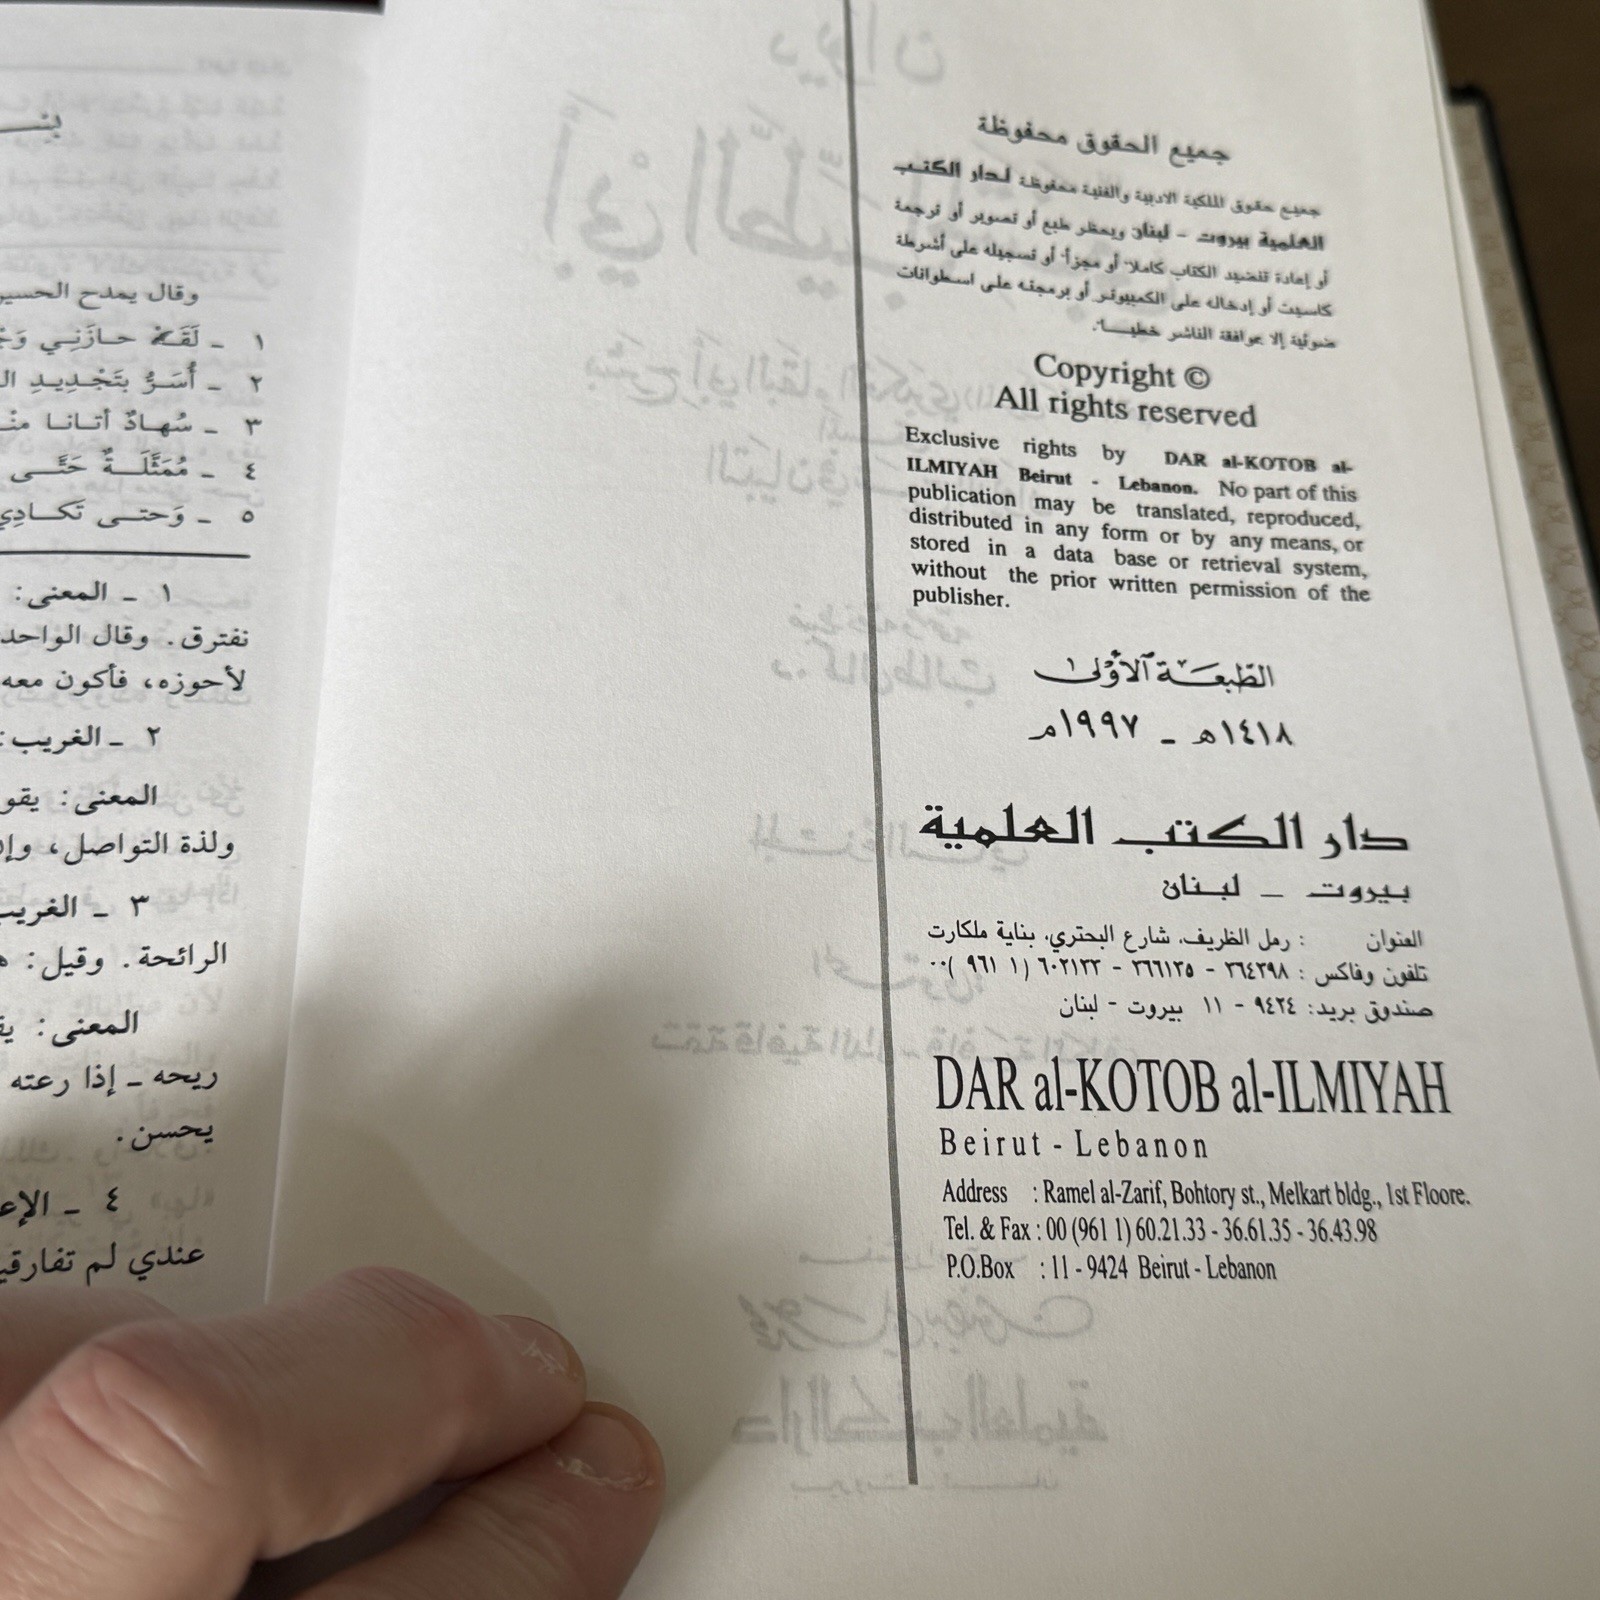 جميع الحقوق محفوظة
جميع حقوق الملكية الادبية والفنية محفوظة لدار الكتب
العلمية بيروت - لبنان ويحظر طبع أو تصوير أو ترجمة
أو إعادة تنضيد الكتاب كاملا أو مجزأ أو تسجيله على أشرطة
كاسيت أو إدخاله على الكمبيوتر أو برمجته على اسطوانات
ضوئية إلا بموافقة الناشر خطيا.
Copyright ©
All rights reserved
Exclusive rights by DAR al-KOTOB al-
ILMIYAH Beirut - Lebanon. No part of this
publication may be translated, reproduced,
distributed in any form or by any means, or
stored in a data base or retrieval system,
without the prior written permission of the
publisher.
الطبعة الأولى
١٤١٨هـ - ١٩٩٧م
دار الكتب العلمية
بيروت - لبنان
العنوان : رمل الظريف، شارع البحتري، بناية ملكارت
تلفون وفاكس : ٣٦٤٣٩٨ - ٣٦٦١٣٥ - ٦٠٢١٣٣ ( ١ ٩٦١ )٠٠
صندوق بريد: ٩٤٢٤ - ١١ بيروت - لبنان
DAR al-KOTOB al-ILMIYAH
Beirut - Lebanon
Address : Ramel al-Zarif, Bohtory st., Melkart bldg., 1st Floore.
Tel. & Fax : 00 (961 1) 60.21.33 - 36.61.35 - 36.43.98
P.O.Box : 11 - 9424 Beirut - Lebanon
وقال يمدح الحسين
١ - لَقَدْ حازَنِي
٢ - أُسَرُّ بتَجْدِيدِ
٣ - سُهادٌ أتانا
٤ - مُمَثَّلَةٌ حَتَّى
٥ - وَحتى تَكادِي
١ - المعنى:
نفترق. وقال الواحد
لأحوزه، فأكون معه
٢ - الغريب:
المعنى: يقو
ولذة التواصل، وإ
٣ - الغريب
الرائحة. وقيل:
المعنى:
ريحه - إذا رعته
يحسن.
٤ - الإع
عندي لم تفارقي